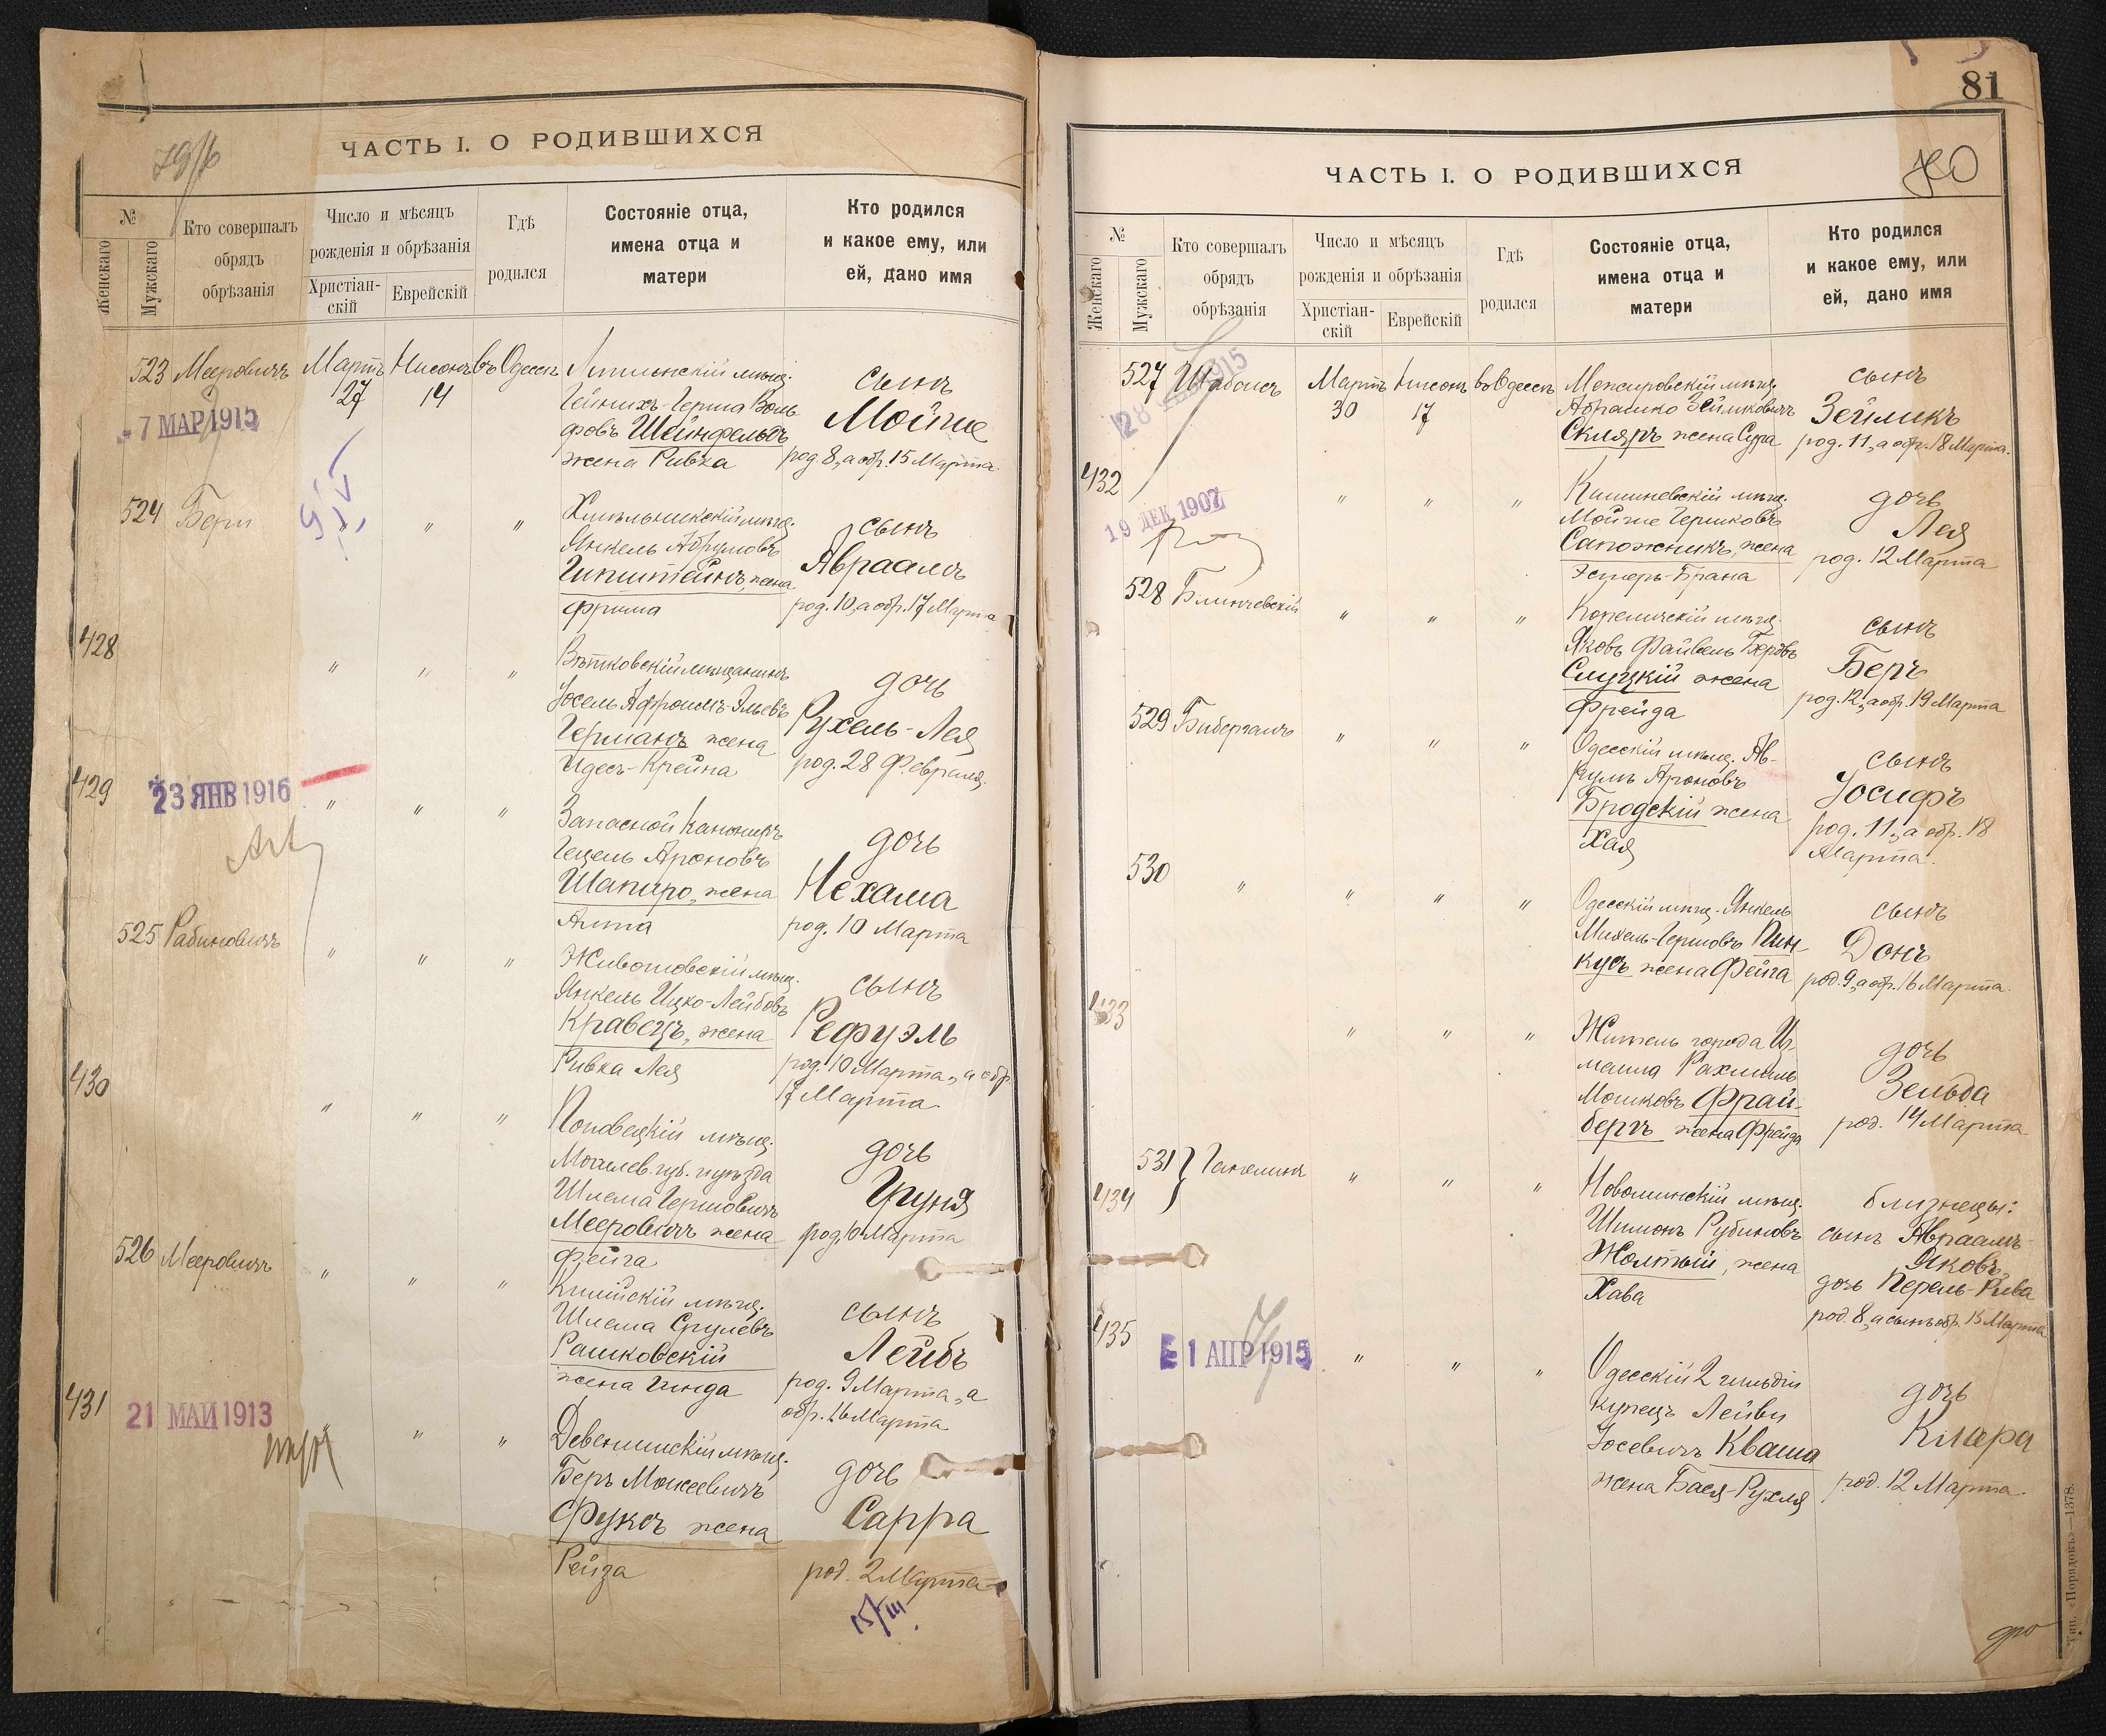 ЧАСТЬ I. О РОДИВШИХСЯ
№
Женскаго
Мужскаго
Кто совершалъ
обрядъ
обрѣзанія
Число и мѣсяцъ
рожденія и обрѣзанія
Христіан-
скій
Еврейскій
Гдѣ
родился
Состояніе отца,
имена отца и
матери
Кто родился
и какое ему, или
ей, дано имя
523 Мееровичъ Мартъ Нисонъ въ Одессѣ
27 14
7 МАР 1915
мѣщ.
Гейнихъ-Герша Воль
фовъ Шейнфельдъ
жена Ривка
сынъ
Мойше
род. 8, а обр. 15 Марта.
524 Бери " " "
Хмѣльникскій мѣщ.
Янкель Абрумовъ
Гипштейнъ, жена
Фрима
сынъ
Авраамъ
род. 10, а обр. 17 Марта
428 " " "
Вѣтковскій мѣщанинъ
Іосель Афроимъ-Эльевъ
Германъ жена
Идесъ-Крейна
дочь
Рухель-Лея
род. 28 Февраля.
429 " " "
23 ЯНВ 1916
Запасной Канониръ
Гецель Ароновъ
Шапиро, жена
Анна
дочь
Нехама
род. 10 Марта
525 Рабиновичъ " " "
Животовскій мѣщ.
Янкель Ицко-Лейбовъ
Кравецъ, жена
Ривка Лея
сынъ
Рефуэль
род. 10 Марта, а обр.
17 Марта.
430 " " "
мѣщ.
Могилев. губ. и уѣзда
Шлема Гершовичъ
Мееровичъ жена
Фейга
дочь
Груня
род. 10 Марта
526 Мееровичъ " " "
Килійскій мѣщ.
Шлема Срулевъ
Рашковскій
жена Гинда
сынъ
Лейбъ
род. 9 Марта, а
обр. 16 Марта
431 " " "
21 МАЙ 1913
Девенишскій мѣщ.
Беръ Мовсеевичъ
Фуксъ жена
Рейза
дочь
Сарра
род. 2 Марта
15/III.
81
ЧАСТЬ I. О РОДИВШИХСЯ
№
Женскаго
Мужскаго
Кто совершалъ
обрядъ
обрѣзанія
Число и мѣсяцъ
рожденія и обрѣзанія
Христіан-
скій
Еврейскій
Гдѣ
родился
Состояніе отца,
имена отца и
матери
Кто родился
и какое ему, или
ей, дано имя
527 Мартъ Нисонъ въ Одессѣ
30 17
Межировскій мѣщ.
Абрашко Зейликовичъ
Скляръ жена Сура
сынъ
Зейликъ
род. 11, а обр. 18 Марта.
432 " " "
19 ДЕК 1907
Кишиневскій мѣщ.
Мойше Гершковъ
Сапожникъ, жена
Эстеръ-Брана
дочь
Лея
род. 12 Марта
528 Блинчевскій " " "
Кореличскій мѣщ.
Яковъ Файвель Беровъ
Слуцкій жена
Фрейда
сынъ
Беръ
род. 12, а обр. 19 Марта
529 Бибергалъ " " "
Одесскій мѣщ. Аб-
румъ Ароновъ
Бродскій жена
Хая
сынъ
Іосифъ
род. 11, а обр. 18
Марта.
530 " " " "
Одесскій мѣщ. Янкель
Михель-Гершовъ Пин-
кусъ жена Фейга
сынъ
Донъ
род. 9, а обр. 16 Марта.
433 " " "
Житель города Из-
маила Рахмиль
Мошковъ Фрай-
бергъ жена Фрейда
дочь
Зельда
род. 14 Марта
531 Ганелинъ " " "
434
Новоминскій мѣщ.
Шимонъ Рубиновъ
Жолтый, жена
Хава
близнецы:
сынъ Авраамъ-
Яковъ,
дочь Перель-Рива
род. 8, а сынъ обр. 15 Марта
435 " " "
1 АПР 1915
Одесскій 2 гильдіи
купецъ Лейви
Іосевичъ Кваша
жена Бася-Рухля
дочь
Клара
род. 12 Марта.
Тип. «Порядокъ»—1378.